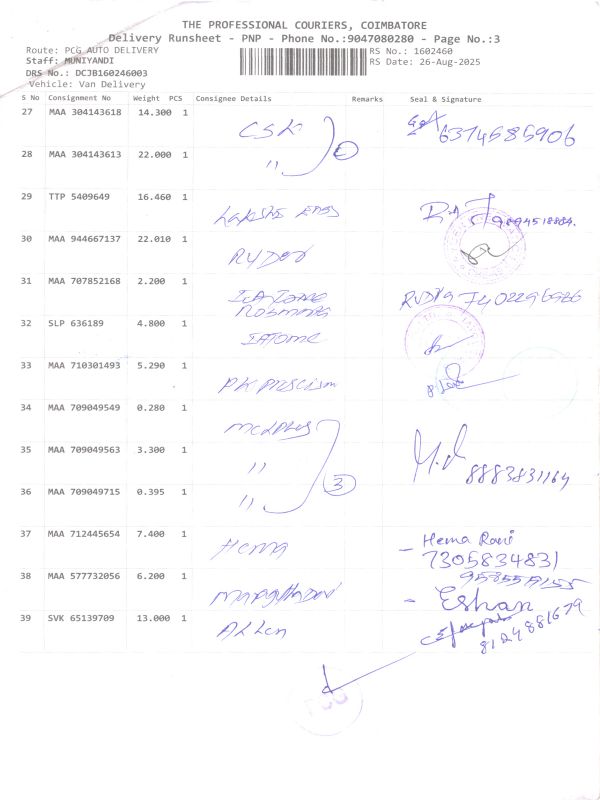 THE PROFESSIONAL COURIERS, COIMBATORE
Delivery Runsheet - PNP - Phone No.:9047080280 - Page No.:3
Route: PCG AUTO DELIVERY
RS No.: 1602460
Staff: MUNIYANDI
RS Date: 26-Aug-2025
DRS No.: DCJB160246003
Vehicle: Van Delivery
S No Consignment No Weight PCS Consignee Details Remarks Seal & Signature
27 MAA 304143618 14.300 1 CSK 6374585906
28 MAA 304143613 22.000 1 " 2
29 TTP 5409649 16.460 1 Lakshs
30 MAA 944667137 22.010 1
31 MAA 707852168 2.200 1
32 SLP 636189 4.800 1 IATOME
33 MAA 710301493 5.290 1 PK
34 MAA 709049549 0.280 1
35 MAA 709049563 3.300 1 " 8883831164
36 MAA 709049715 0.395 1 " 3
37 MAA 712445654 7.400 1 Hema - Hema Rani
7305834831
38 MAA 577732056 6.200 1 - Eshan
39 SVK 65139709 13.000 1 Allen 8124881679